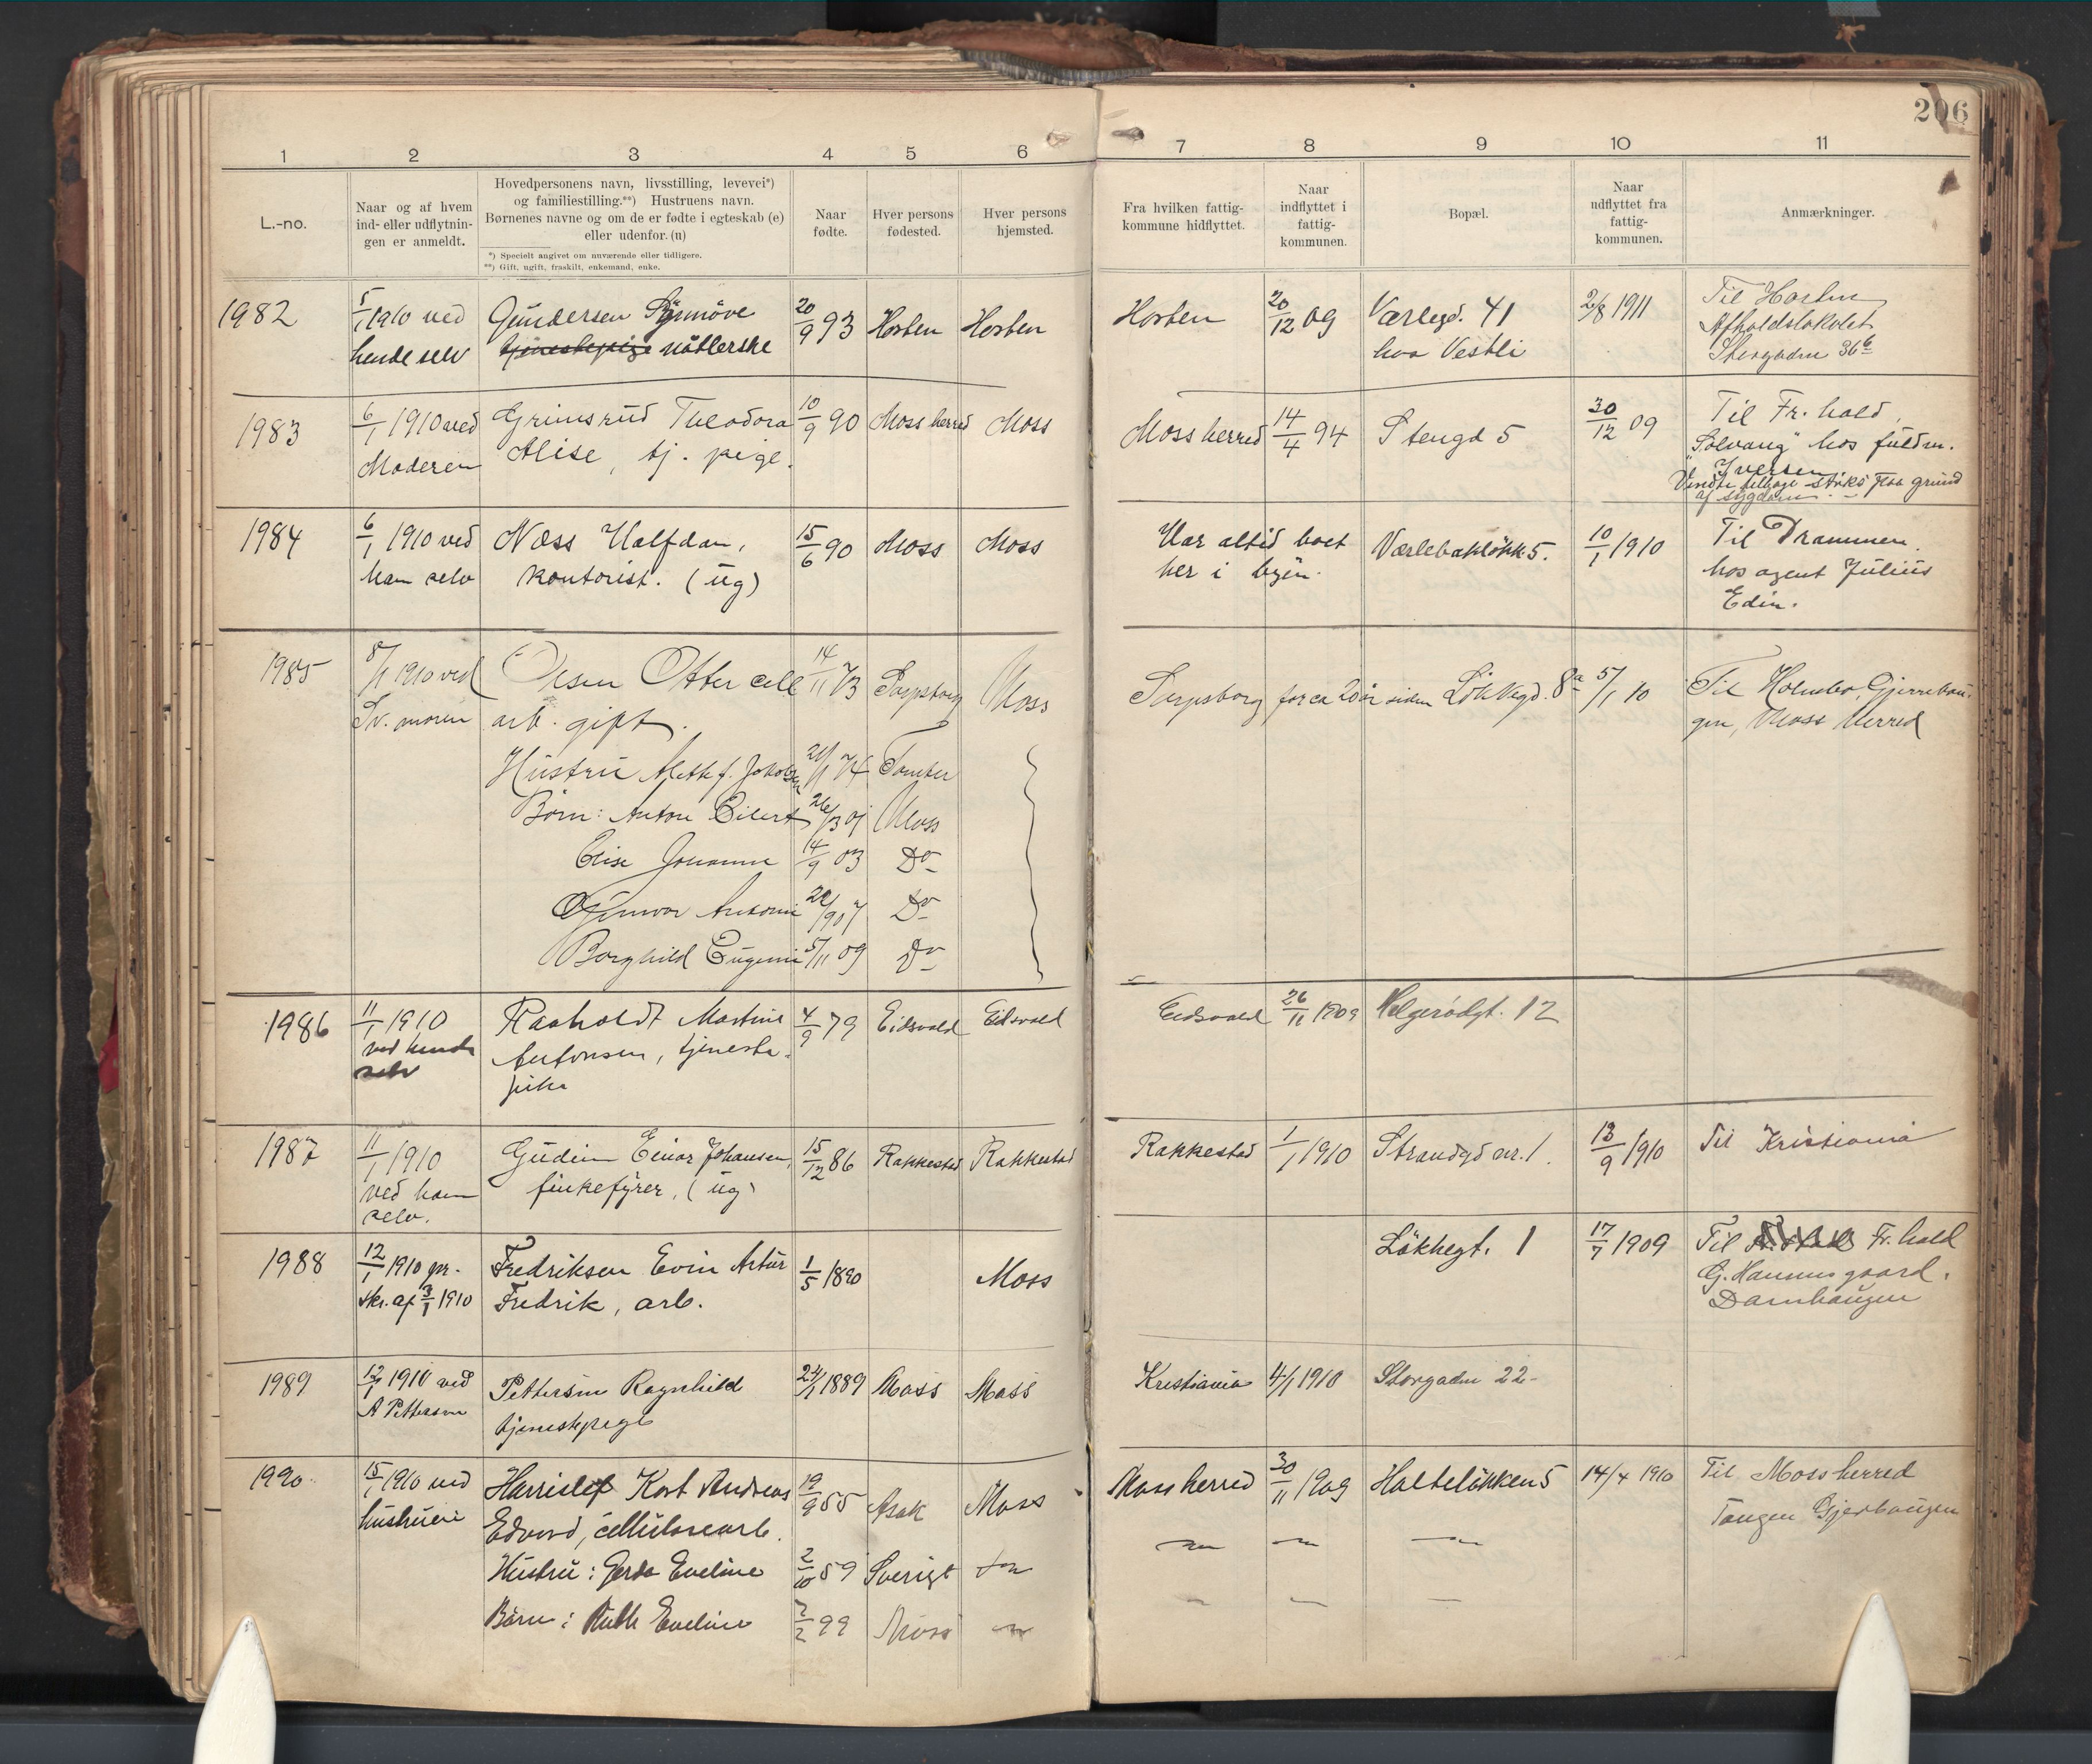 206
1 2 3 4 5 6 7 8 9 10 11
L.-no.
Naar og af hvem
ind- eller udflytnin-
gen er anmeldt.
Hovedpersonens navn, livsstilling, levevei*)
og familiestilling.**) Hustruens navn.
Børnenes navne og om de er fødte i egteskab (e)
eller udenfor. (u)
*) Specielt angivet om nuværende eller tidligere.
**) Gift, ugift, fraskilt, enkemand, enke.
Naar
fødte.
Hver persons
fødested.
Hver persons
hjemsted.
Fra hvilken fattig-
kommune hidflyttet.
Naar
indflyttet i
fattig-
kommunen.
Bopæl.
Naar
udflyttet fra
fattig-
kommunen.
Anmærkninger.
1982 5/1 1910 ved Gundersen Synnöve 20/9 93 Horten Horten Horten 20/12 09 Værlegd. 41 2/8 1911 Til Horten
hende selv tjenestepige nåtlerske hos Vestli Afholdslokalet
Storgaden 36 b
1983 6/1 1910 ved Grimsrud Theodora 10/9 90 Moss herred Moss Moss herred 14/4 94 Stengd 5 30/12 09 Til Fr. hald
Moderen Alise, tj. pige. "Solvang" hos fuldm.
Iversen
Vendte tilbage straks paa grund
af sygdom.
1984 6/1 1910 ved Næss Halfdan, 15/6 90 Moss Moss Har altid boet Værlebakløkk 5. 10/1 1910 Til Drammen
ham selv kontorist. (ug) her i byen. hos agent Julius
Edin.
1985 8/1 1910 ved Olsen Otter cell 14/11 73 Sarpsborg Moss Sarpsborg for ca 20 år siden Løkkegd. 8a 5/1 10 Til Holmbo, Gjerrebau-
Sv. moren arb. gift. gen, Moss Herred
Hustru Aleth f. Jakobsen 21/1 74 Tomter
Børn: Anton Eilert 26/3 01 Moss
Elise Johanne 14/9 03 Do
Gunvor Antonie 22/9 07 Do
Borghild Eugenie 5/11 09 Do
1986 11/1 1910 Raaholdt Martine 4/9 79 Eidsvold Eidsvold Eidsvold 26/11 1909 Helgerødgt. 12
ved hende Antonsen, tjeneste-
selv pike
1987 11/1 1910 Gudim Einar Johansen, 15/12 86 Rakkestad Rakkestad Rakkestad 1/1 1910 Strandgd nr. 1. 13/9 1910 Til Kristiania
ved ham finkefyrer, (ug)
selv.
1988 12/1 1910 pr. Fredriksen Evin Artur 1/5 1890 Moss Løkkegt. 1 17/7 1909 Til Fr. hald
skr. af 3/1 1910 Fredrik, arb. G. Hannesgaard.
Damhaugen
1989 12/1 1910 ved Pettersen Ragnhild 24/1 1889 Moss Moss Kristiania 4/1 1910 Storgaden 22
A Pettersen tjenestepige
1990 15/1 1910 ved Harrislef Kort Andreas 19/9 55 Asak Moss Moss herred 30/11 1909 Halteløkken 5 14/4 1910 Til Moss herred
hustruen Edvard, cellulosearb. Tangen Gjerbaugen
Hustru: Gerda Eveline 2/10 59 Sverige
Børn: Ruth Eveline 7/2 99 Moss